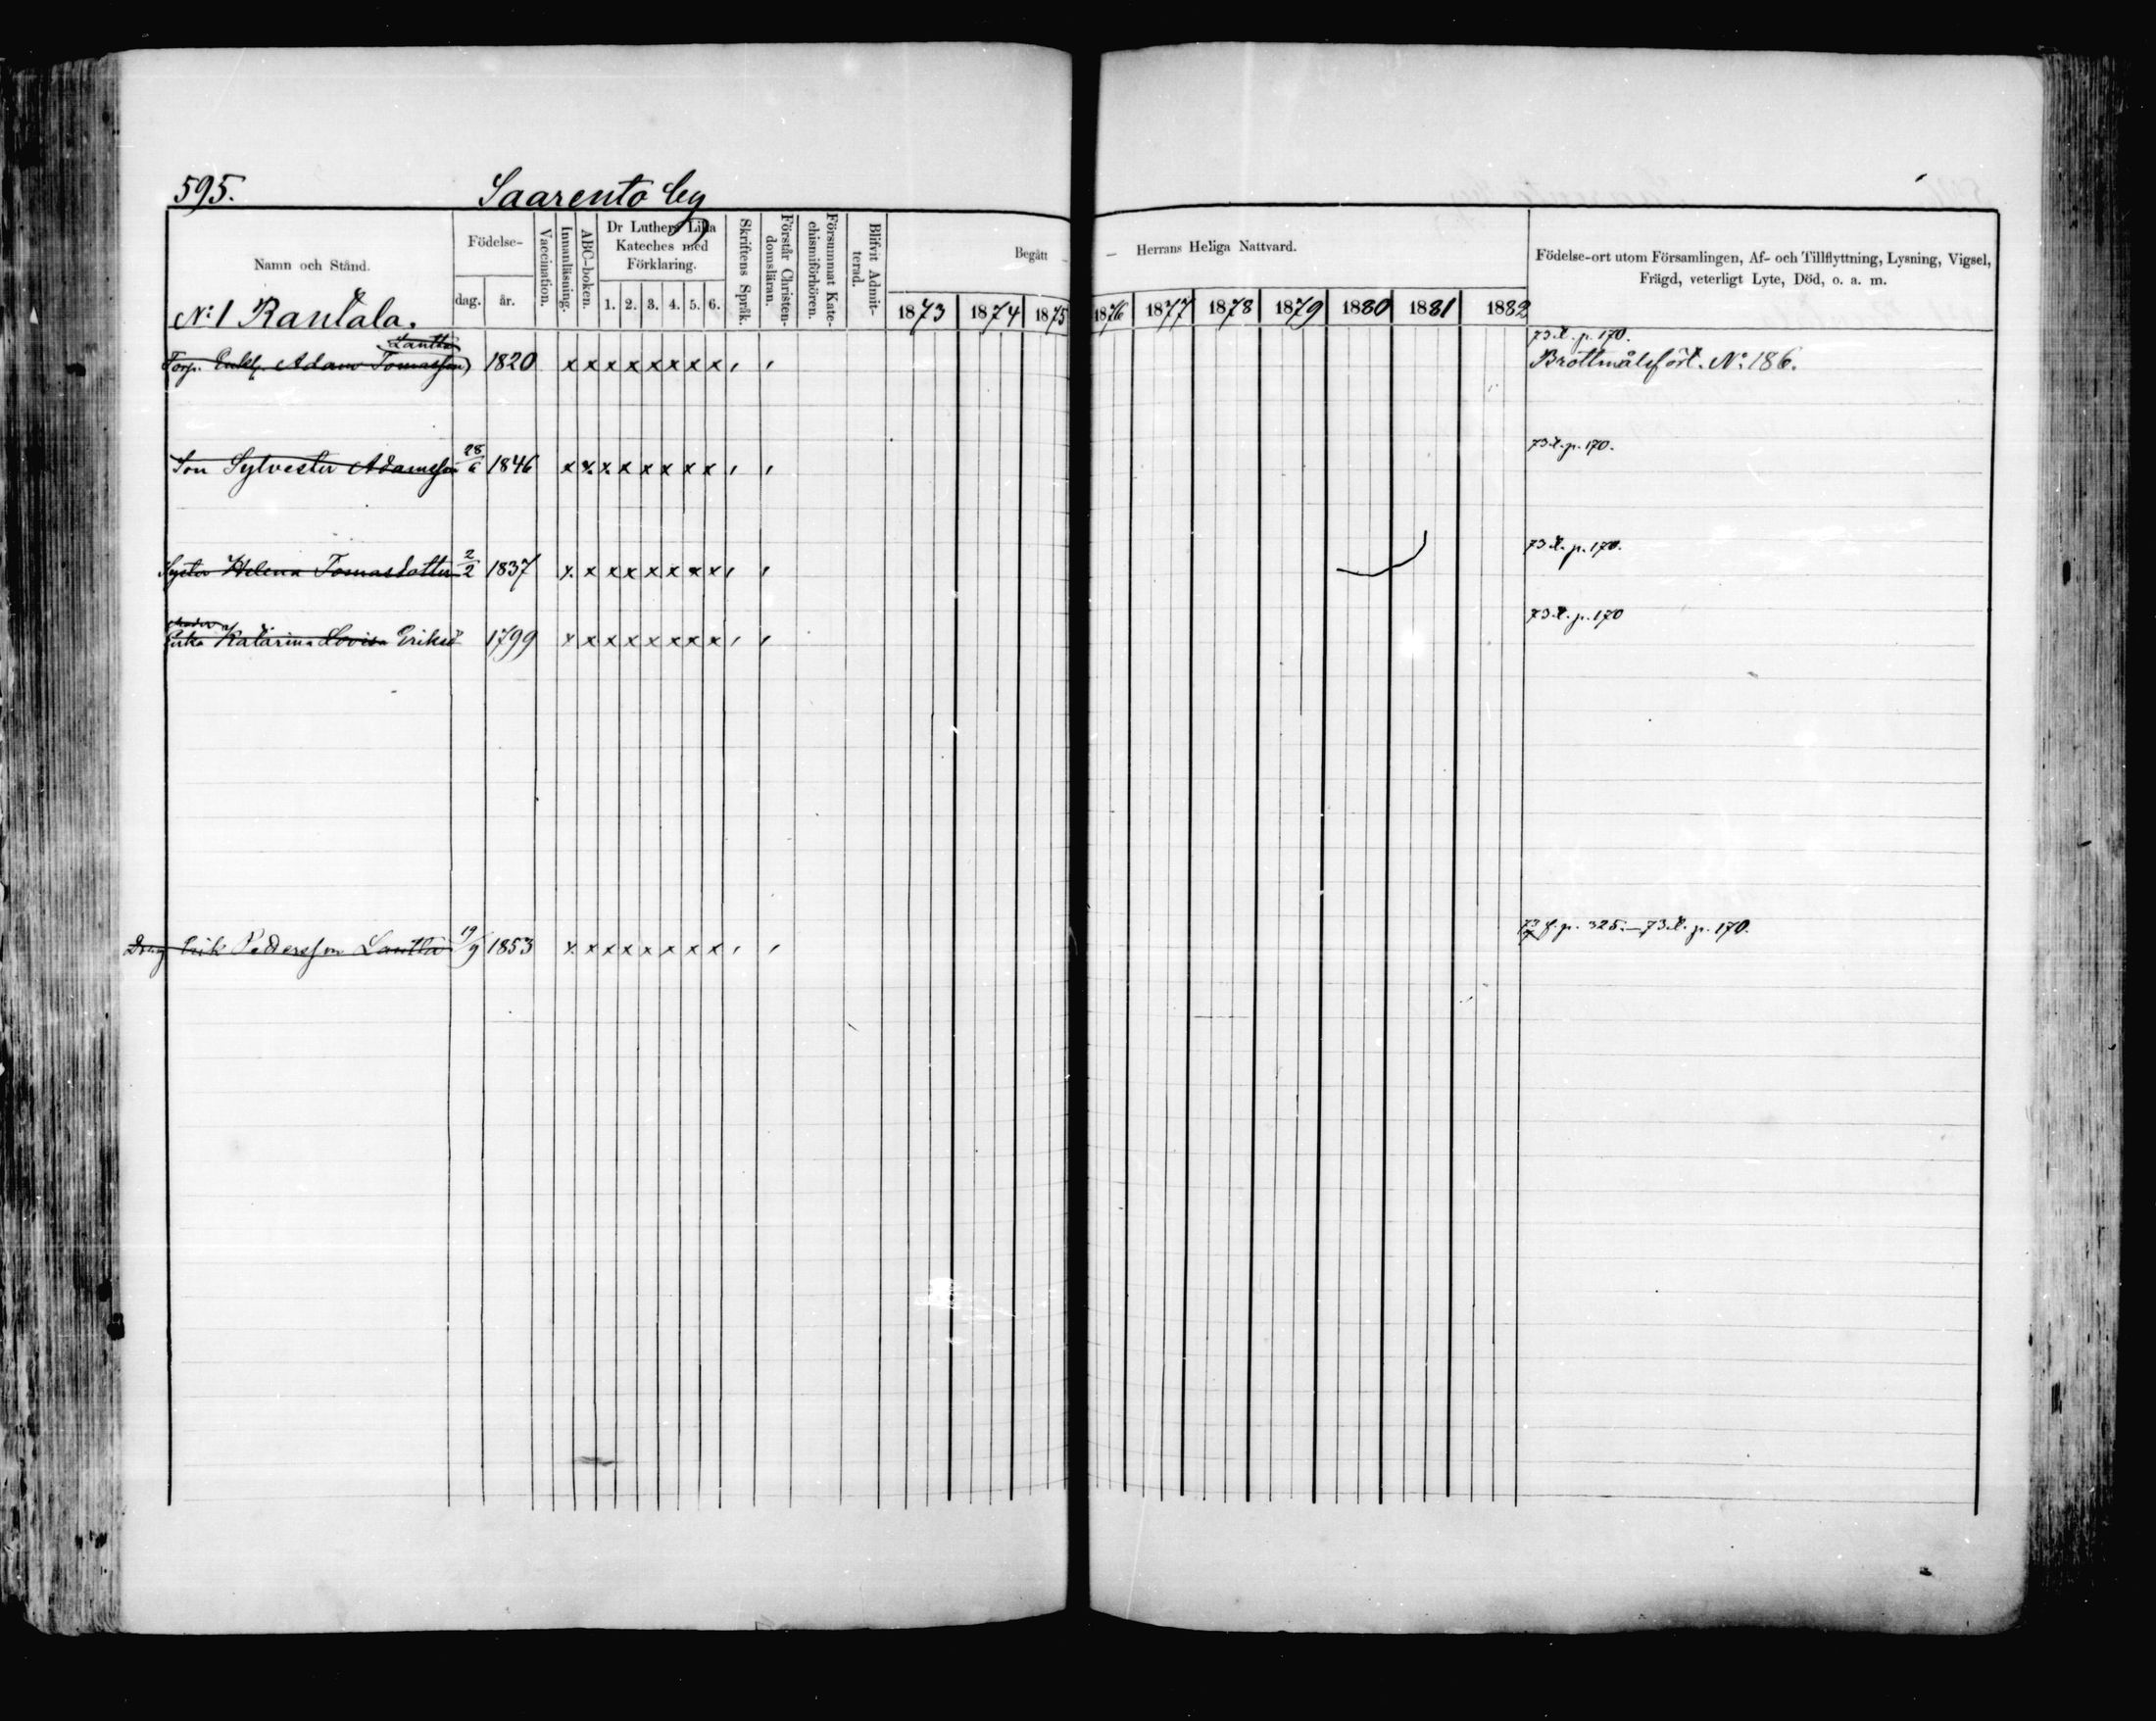 595. Saarento by
Namn och Stånd. Födelse- dag. år. Vaccination. Innanläsning. ABC-boken. Dr Luthers Lilla Kateches med Förklaring. 1. 2. 3. 4. 5. 6. Skriftens Språk. Förstår Christendomsläran. Försummat Katechismiförhören. Blifvit Admitterad. Begått — Herrans Heliga Nattvard. Födelse-ort utom Församlingen, Af- och Tillflyttning, Lysning, Vigsel, Frägd, veterligt Lyte, Död, o. a. m.
1873 1874 1875 1876 1877 1878 1879 1880 1881 1882
No: 1 Rantala.
Lantto 73 p. 170.
Torp. Enkl. Adam Tomasson 1820 x x x x x x x x Brottmålsfört. No: 186.
73 p. 170.
Son Sylvester Adamsson 28/6 1846 x x x x x x x x
73 p. 170.
Syster Helena Tomasdotter 2/2 1837 x x x x x x x x
73 p. 170
Enka Katarina Lovisa Eriksd 1799 x x x x x x x x
p. 325. — 73 p. 170.
Dräng Erik Pedersson Lantto 19/9 1853 x x x x x x x x